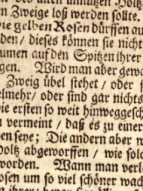 Zweige loß werden sollte.
gelben Rosen dürffen au
den / dieses können sie nicht
umen auf den Spitzen ihrer
gen. Wird man aber gewa
Zweig übel stehet / oder
lmehr / oder sind gar nichts
ie ersten so weit hinweggesch
vermeint / daß es zu einer
en seye; Die andern aber
Holtz abgeworffen / wie sol
worden. Wann man verl
osen um so viel schöner wac